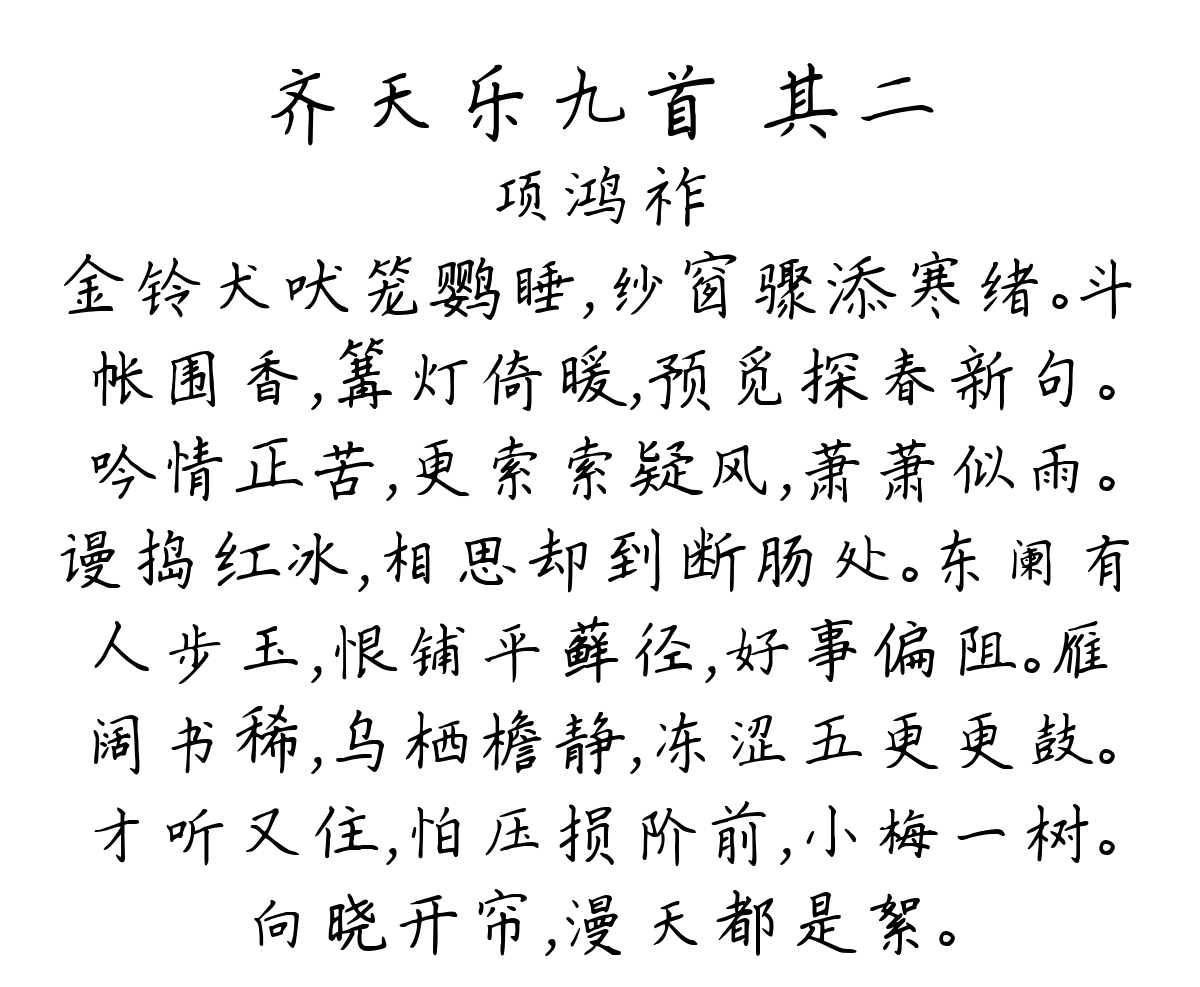 齐天乐九首 其二
项鸿祚
金铃犬吠笼鹦睡,纱窗骤添寒绪。斗
帐围香,篝灯倚暖,预觅探春新句。
吟情正苦,更索索疑风,萧萧似雨。
谩捣红冰,相思却到断肠处。东阑有
人步玉,恨铺平藓径,好事偏阻。雁
阔书稀,乌栖檐静,冻涩五更更鼓。
才听又住,怕压损阶前,小梅一树。
向晓开帘,漫天都是絮。